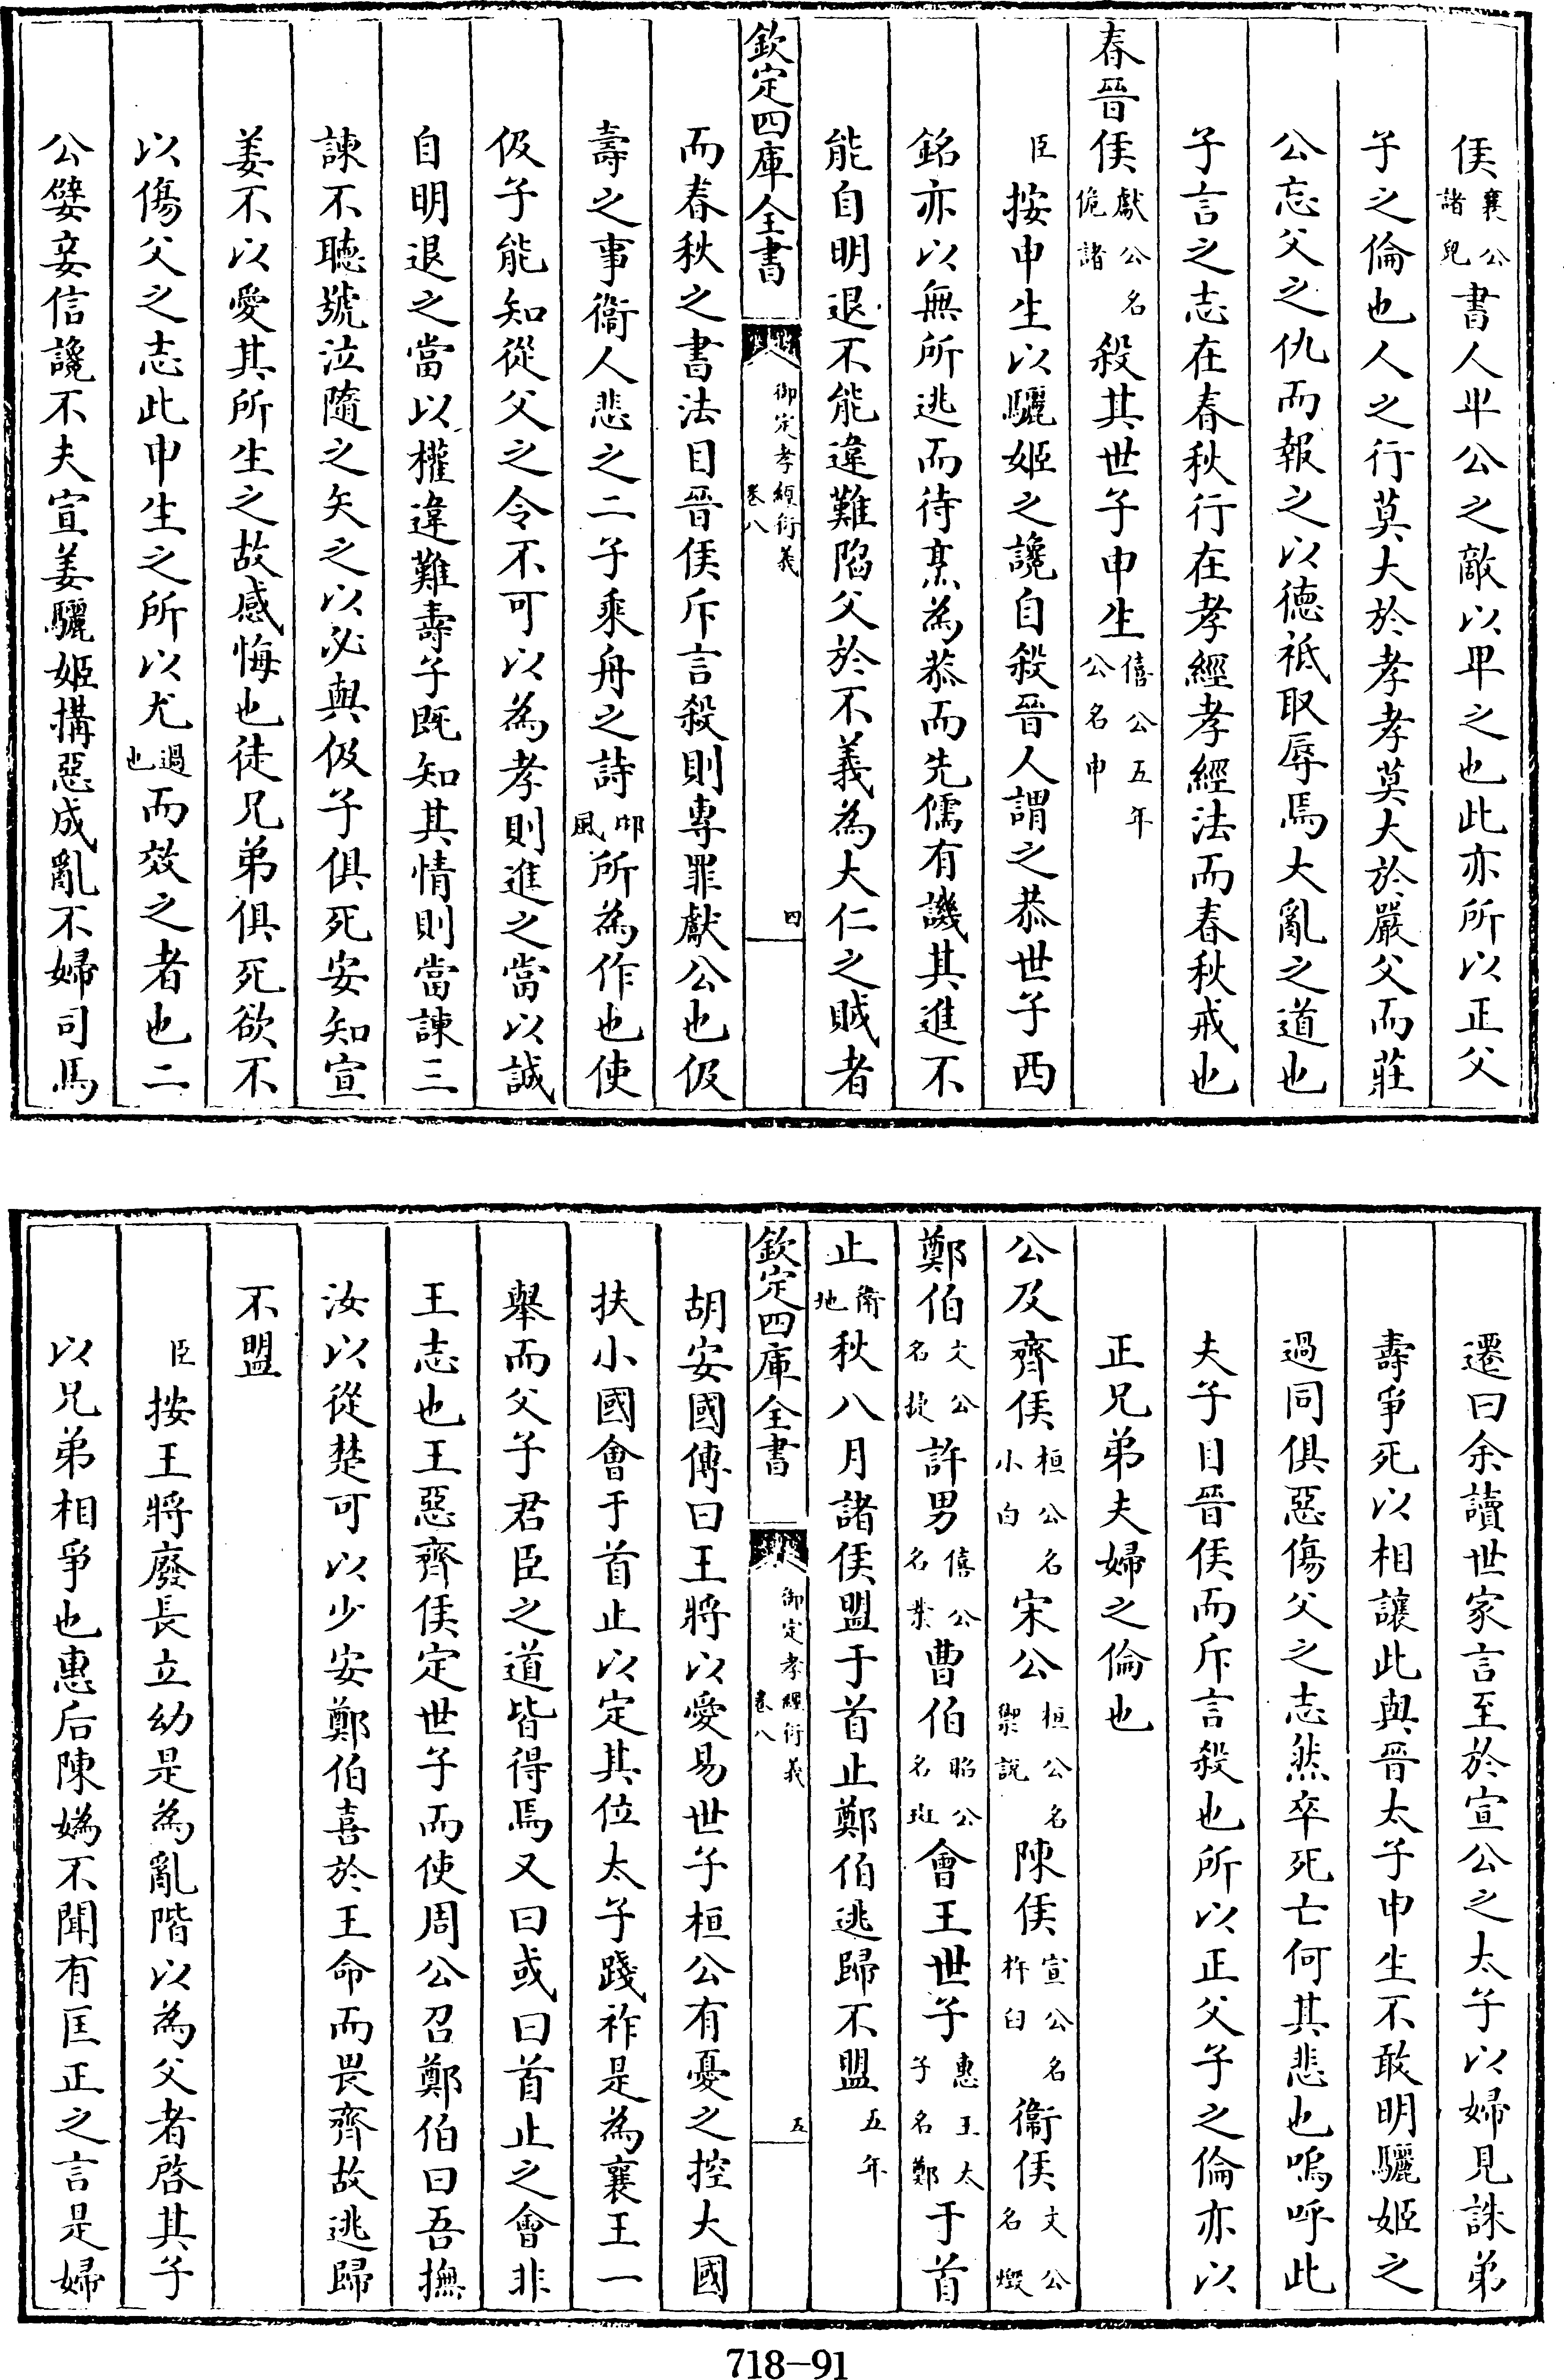 侯襄公諸兒書人卑公之敵以卑之也此亦所以正父
子之倫也人之行莫大於孝孝莫大於嚴父而莊
公忘父之仇而報之以德祇取辱焉大亂之道也
子言之志在春秋行在孝經孝經法而春秋戒也
春晉侯獻公名佹諸殺其世子申生僖公五年公名申
臣按申生以驪姬之讒自殺晉人謂之恭世子西
銘亦以無所逃而待烹為恭而先儒有譏其進不
能自明退不能違難陷父於不義為大仁之賊者
欽定四庫全書 御定孝經衍義 卷八 四
而春秋之書法目晉侯斥言殺則專罪獻公也伋
壽之事衞人悲之二子乘舟之詩邶風所為作也使
伋子能知從父之令不可以為孝則進之當以誠
自明退之當以權違難壽子既知其情則當諫三
諫不聽號泣隨之矢之以必與伋子俱死安知宣
姜不以愛其所生之故感悔也徒兄弟俱死欲不
以傷父之志此申生之所以尤過也而效之者也二
公嬖妾信讒不夫宣姜驪姬搆惡成亂不婦司馬
遷曰余讀世家言至於宣公之太子以婦見誅弟
壽爭死以相讓此與晉太子申生不敢明驪姬之
過同俱惡傷父之志然卒死亡何其悲也嗚呼此
夫子目晉侯而斥言殺也所以正父子之倫亦以
正兄弟夫婦之倫也
公及齊侯桓公名小白宋公桓公名禦說陳侯宣公名杵臼衞侯文公名燬
鄭伯文公名捷許男僖公名業曹伯昭公名班會王世子惠王太子名鄭于首
止衞地秋八月諸侯盟于首止鄭伯逃歸不盟五年
欽定四庫全書 御定孝經衍義 卷八 五
胡安國傳曰王將以愛易世子桓公有憂之控大國
扶小國會于首止以定其位太子踐祚是為襄王一
舉而父子君臣之道皆得焉又曰或曰首止之會非
王志也王惡齊侯定世子而使周公召鄭伯曰吾撫
汝以從楚可以少安鄭伯喜於王命而畏齊故逃歸
不盟
臣按王將廢長立幼是為亂階以為父者啓其子
以兄弟相爭也惠后陳媯不聞有匡正之言是婦
718-91